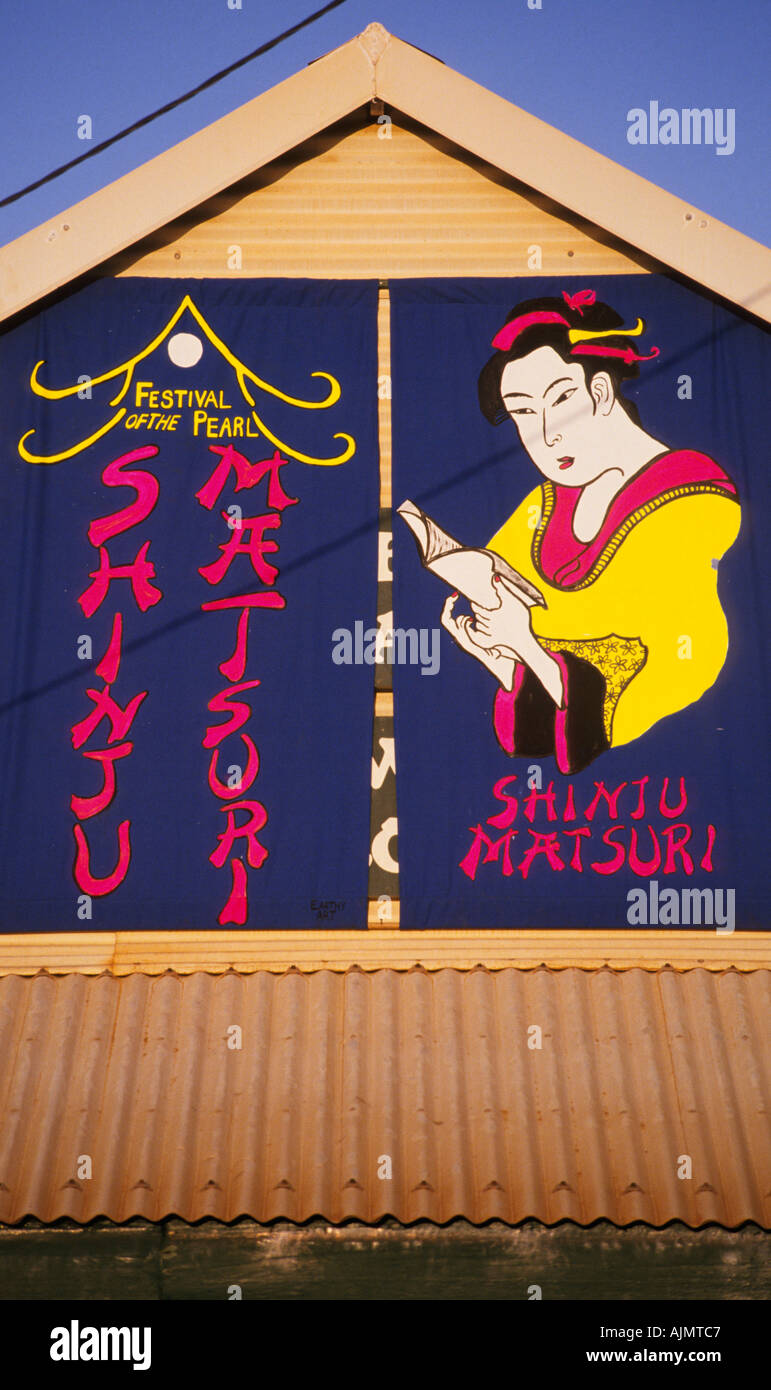 FESTIVAL
OF THE PEARL
SHINJU
MATSURI
EARTHY
ART
SHINJU
MATSURI
alamy
Image ID: AJMTC7
www.alamy.com